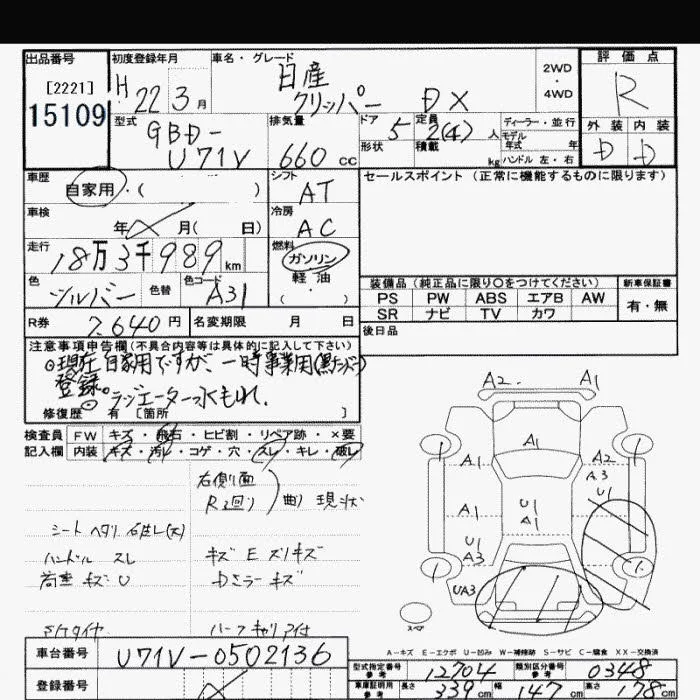 出品番号
[2221]
15109
初度登録年月
H22 3月
車名・グレード
日産
クリッパー DX
2WD
・
4WD
評価点
R
外装 内装
D D
型式
GBD-
U71V
排気量
660 cc
ドア
5
定員
2(4)人
形状
積載
kg
ディーラー・並行
モデル
年式 年
ハンドル 左・右
車歴
自家用・( )
シフト
AT
セールスポイント(正常に機能するものに限ります)
車検
年 月( 日)
冷房
AC
走行
18万3千989km
燃料
ガソリン
軽油
・( )
色
シルバー
色替
色コード
A31
装備品(純正品に限り〇をつけてください)
新車保証書
PS PW ABS エアB AW
SR ナビ TV カワ
有・無
R券
7,640円
名変期限 月 日
後日品
注意事項申告欄(不具合内容等は具体的に記入して下さい)
現在自家用ですが、一時事業用(黒ナンバー)
登録。
ラジエーター水もれ.
修復歴 有 [箇所 ]
検査員
記入欄
FW キズ・飛石・ヒビ割・リペア跡・×要
内装 キズ・汚レ・コゲ・穴・スレ・キレ・破レ
右側面
R廻り
曲り 現状
シート ヘタリ 破レ(大)
ハンドル スレ
荷室 キズ U
キズ E スリキズ
Dミラー キズ
S/Tタイヤ
ハーフキャリア付
A2 A1
A1
A1
A2
A3
U1
A1
U1
A1
U1
A3
UA3
1
1
スペア
A-キズ E-エクボ U-凹み W-補修跡 S-サビ C-腐食 XX-交換済
車台番号
U71V-0502136
登録番号
型式指定番号
参考
12704
類別区分番号
参考
0348
車庫証明用
参考
長さ 339cm 幅 147cm 高さ 78cm